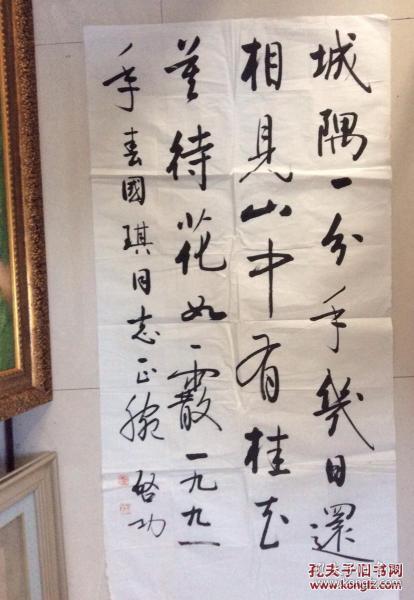 城隅一分手幾日還
相見山中有桂花
莫待花如霰一九九一
年春國琪同志正腕 啓功
孔夫子旧书网